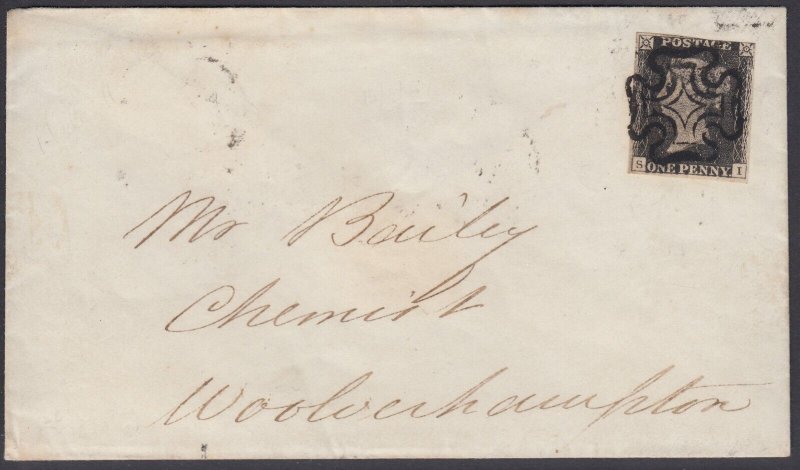 POSTAGE
S I
ONE PENNY
Mr Bailey
Chemist
Woolverhampton